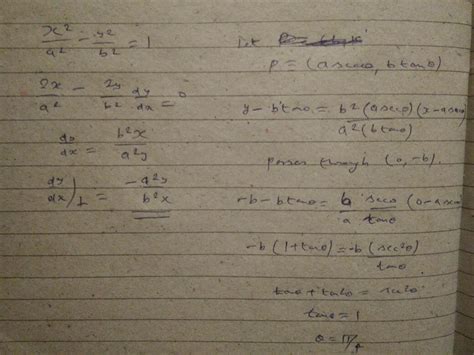 x²/a² - y²/b² = 1
2x/a² - 2y/b² dy/dx = 0
dy/dx = b²x/a²y
dy/dx)⊥ = -a²y/b²x
Let
P = (a secθ, b tanθ)
y - b tanθ = b²(a secθ)(x - a secθ)/a²(b tanθ)
passes through (0, -b).
-b - b tanθ = b/a secθ/tanθ (0 - a secθ
-b(1+tanθ) = -b(sec²θ)/tanθ
tanθ + tan²θ = sec²θ
tanθ = 1
θ = π/4